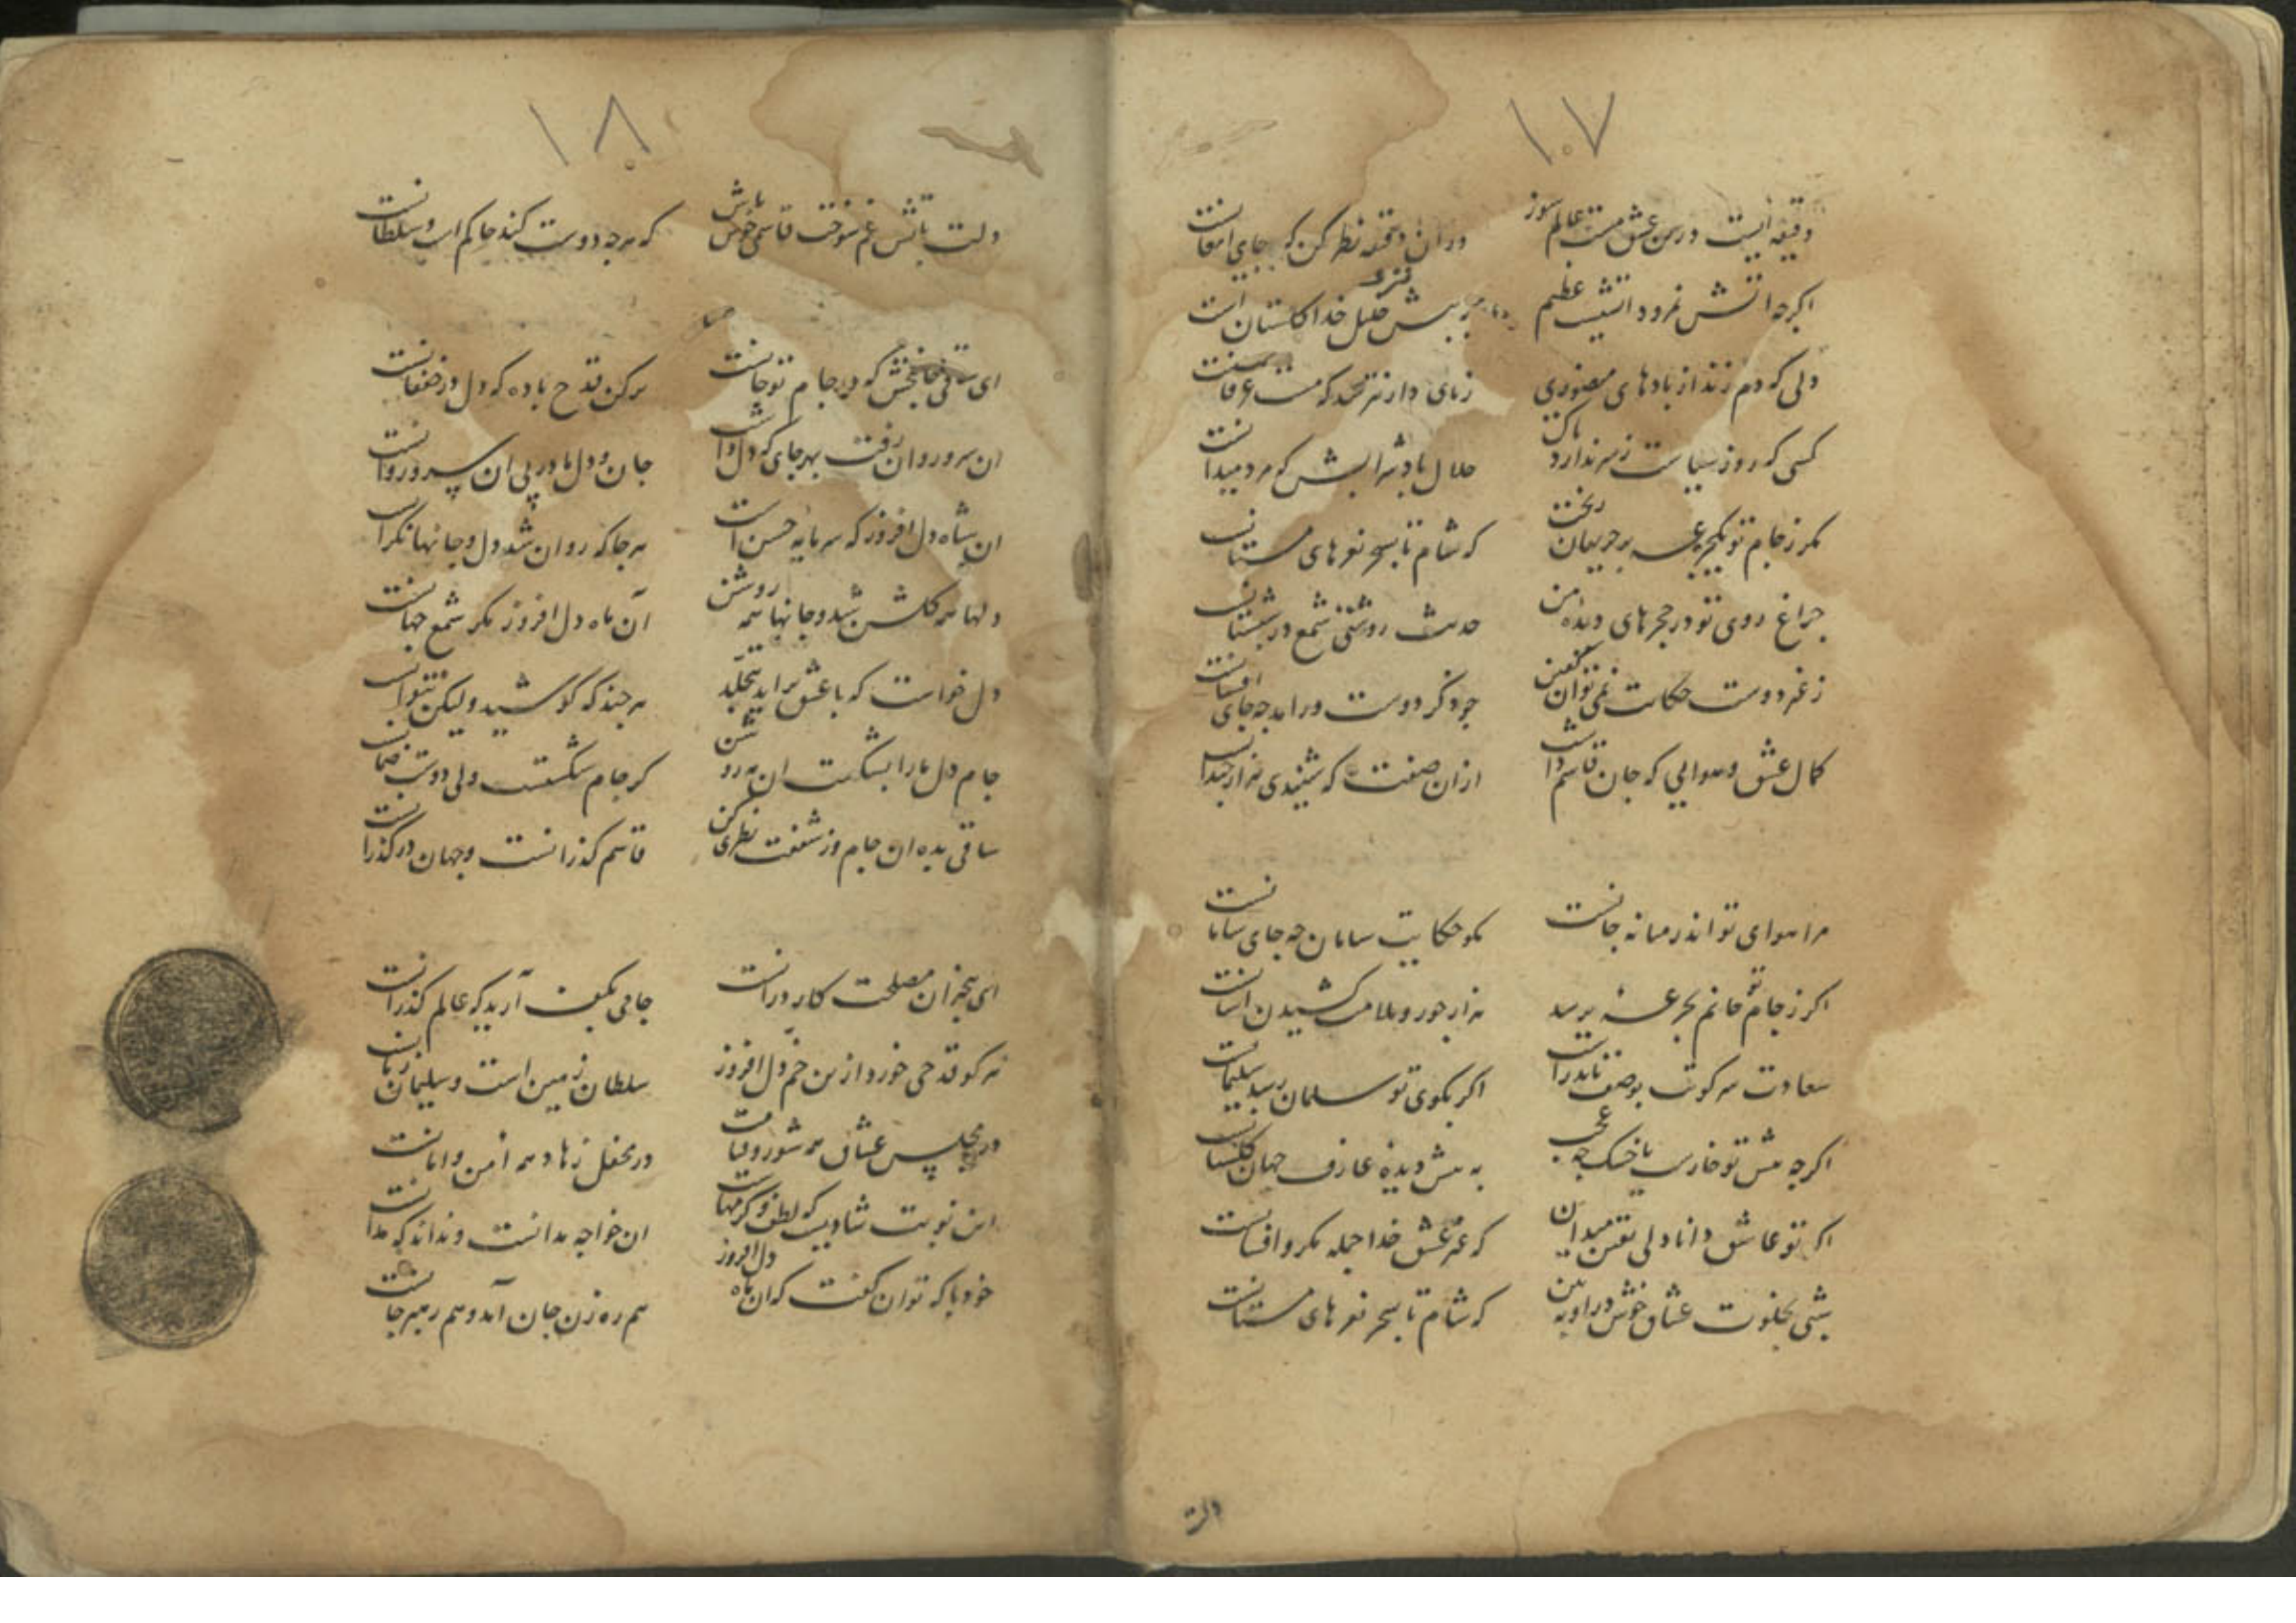 ۱۰۷
دقیقه ایست درین عشق مست عالم سوز
در ان دقیقه نظر کن که جای امعانست
اکرچه اتش نمرود اتشیست عظیم
به پیش خلیل خدا کلستان است
دلی که دم زند از بادهای منصوری
کسی که روز سیاست ز سر ندارد باک
حلال باد شرابش که مرد میدانست
مکر ز جام تو یکجرعه بر حریفان ریخت
که شام تا بسحر نعرهای مستانست
چراغ روی تو در حجرهای دیده من
حدیث روشنی شمع در شبستانست
ز غیر دوست حکایت نمی توان کفتن
چو ذکر دوست در اید چه جای افسانست
کمال عشق و هوایی که جان قاسم راست
ازان صفت که شنیدی هزار چندانست
مرا هوای تو اندر میانه جانست
مکو حکایت سامان چه جای سامانست
اکر ز جام تو جانم بجرعه برسد
هزار جور و بلا می کشیدن اسانست
سعادت سر کویت بوصف ناید راست
اکر بکوی تو سلمان رسد سلیمانست
اکرچه پیش تو خاریست یا خسک چه عجب
به پیش دیده عارف جهان کلستانست
اکر تو عاشق دانادلی یقین میدان
که غیر عشق خدا جمله مکر و افسانست
شبی بخلوت عشاق خوش درا و ببین
که شام تا بسحر نعرهای مستانست
دلت
۱۰۸
دلت باتش غم سوخت قاسمی خوش باش
که هرچه دوست کند حاکم است و سلطانست
ای ساقی جان بخش که در جام تو جانست
پر کن قدح باده که دل در خفقانست
ان سرو روان رفت بهر جای که دل داشت
جان و دل ما در پی ان سرو روانست
ان شاه دل افروز که سرمایه حسن است
هر جا که روان شد دل و جانها نکرانست
دلها همه کلشن شد و جانها همه روشن
آن ماه دل افروز مکر شمع جهانست
دل خواست که با عشق براید بتجلد
هر چند که کوشید ولیکن نتوانست
جام دل ما را بشکست ان
کر جام شکست ولی دوست ضمانست
ساقی بده ان جام وز شفقت نظری کن
قاسم کذرانست و جهان در کذرانست
ای بیخبران مصلحت کار درانست
جامی بکف آرید که عالم کذرانست
هر کو قدحی خورد ازین خم دل افروز
سلطان زمین است و سلیمان زمانست
در مجلس عشاق همه شور و قیامت
در محفل زهاد همه امن و امانست
این نوبت شادیست که لطف و کرمهاست
ان خواجه ندانست و نداند که ندانست
خود با که توان کفت که ان ماه دل افروز
هم ره زن جان آمد و هم رهبر جانست